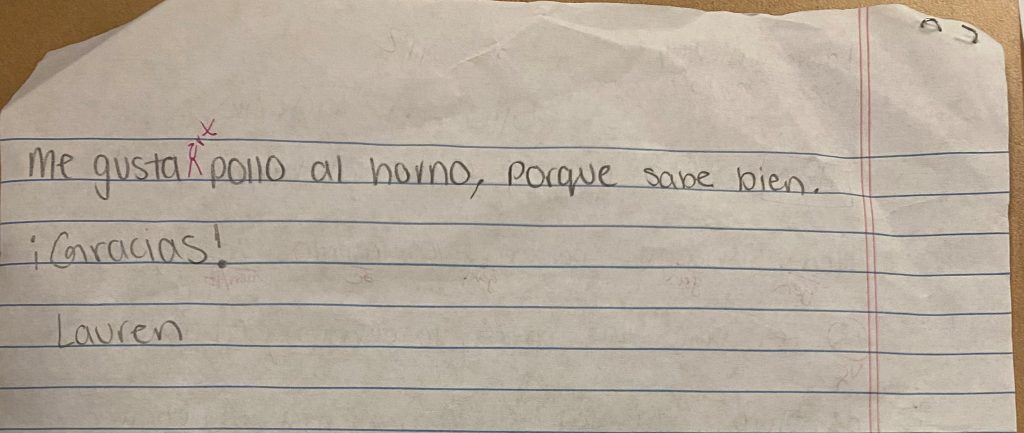 Me gusta pollo al horno, porque sabe bien.
¡Gracias!
Lauren